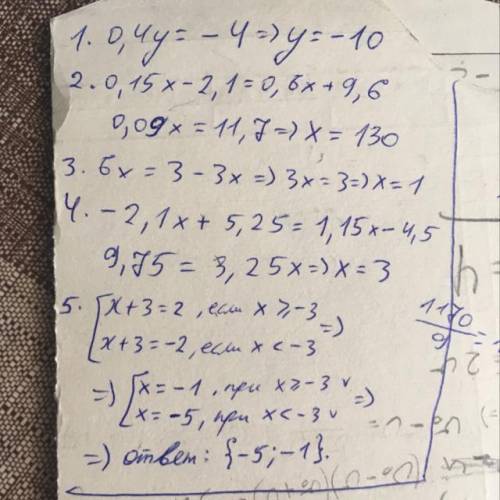 1. 0,4y = -4 => y = -10
2. 0,15x - 2,1 = 0,6x + 9,6
0,09x = 11,7 => x = 130
3. 6x = 3 - 3x => 3x = 3 => x = 1
4. -2,1x + 5,25 = 1,15x - 4,5
9,75 = 3,25x => x = 3
5. [x + 3 = 2, если x ≥ -3
[x + 3 = -2, если x < -3 =>
=> [x = -1, при x ≥ -3 v
[x = -5, при x < -3 v =>
=> ответ: {-5; -1}.
1170
9